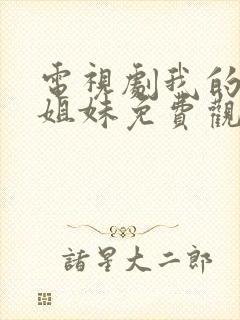 電視劇我的
姐妹免費觀
諸星大二郎